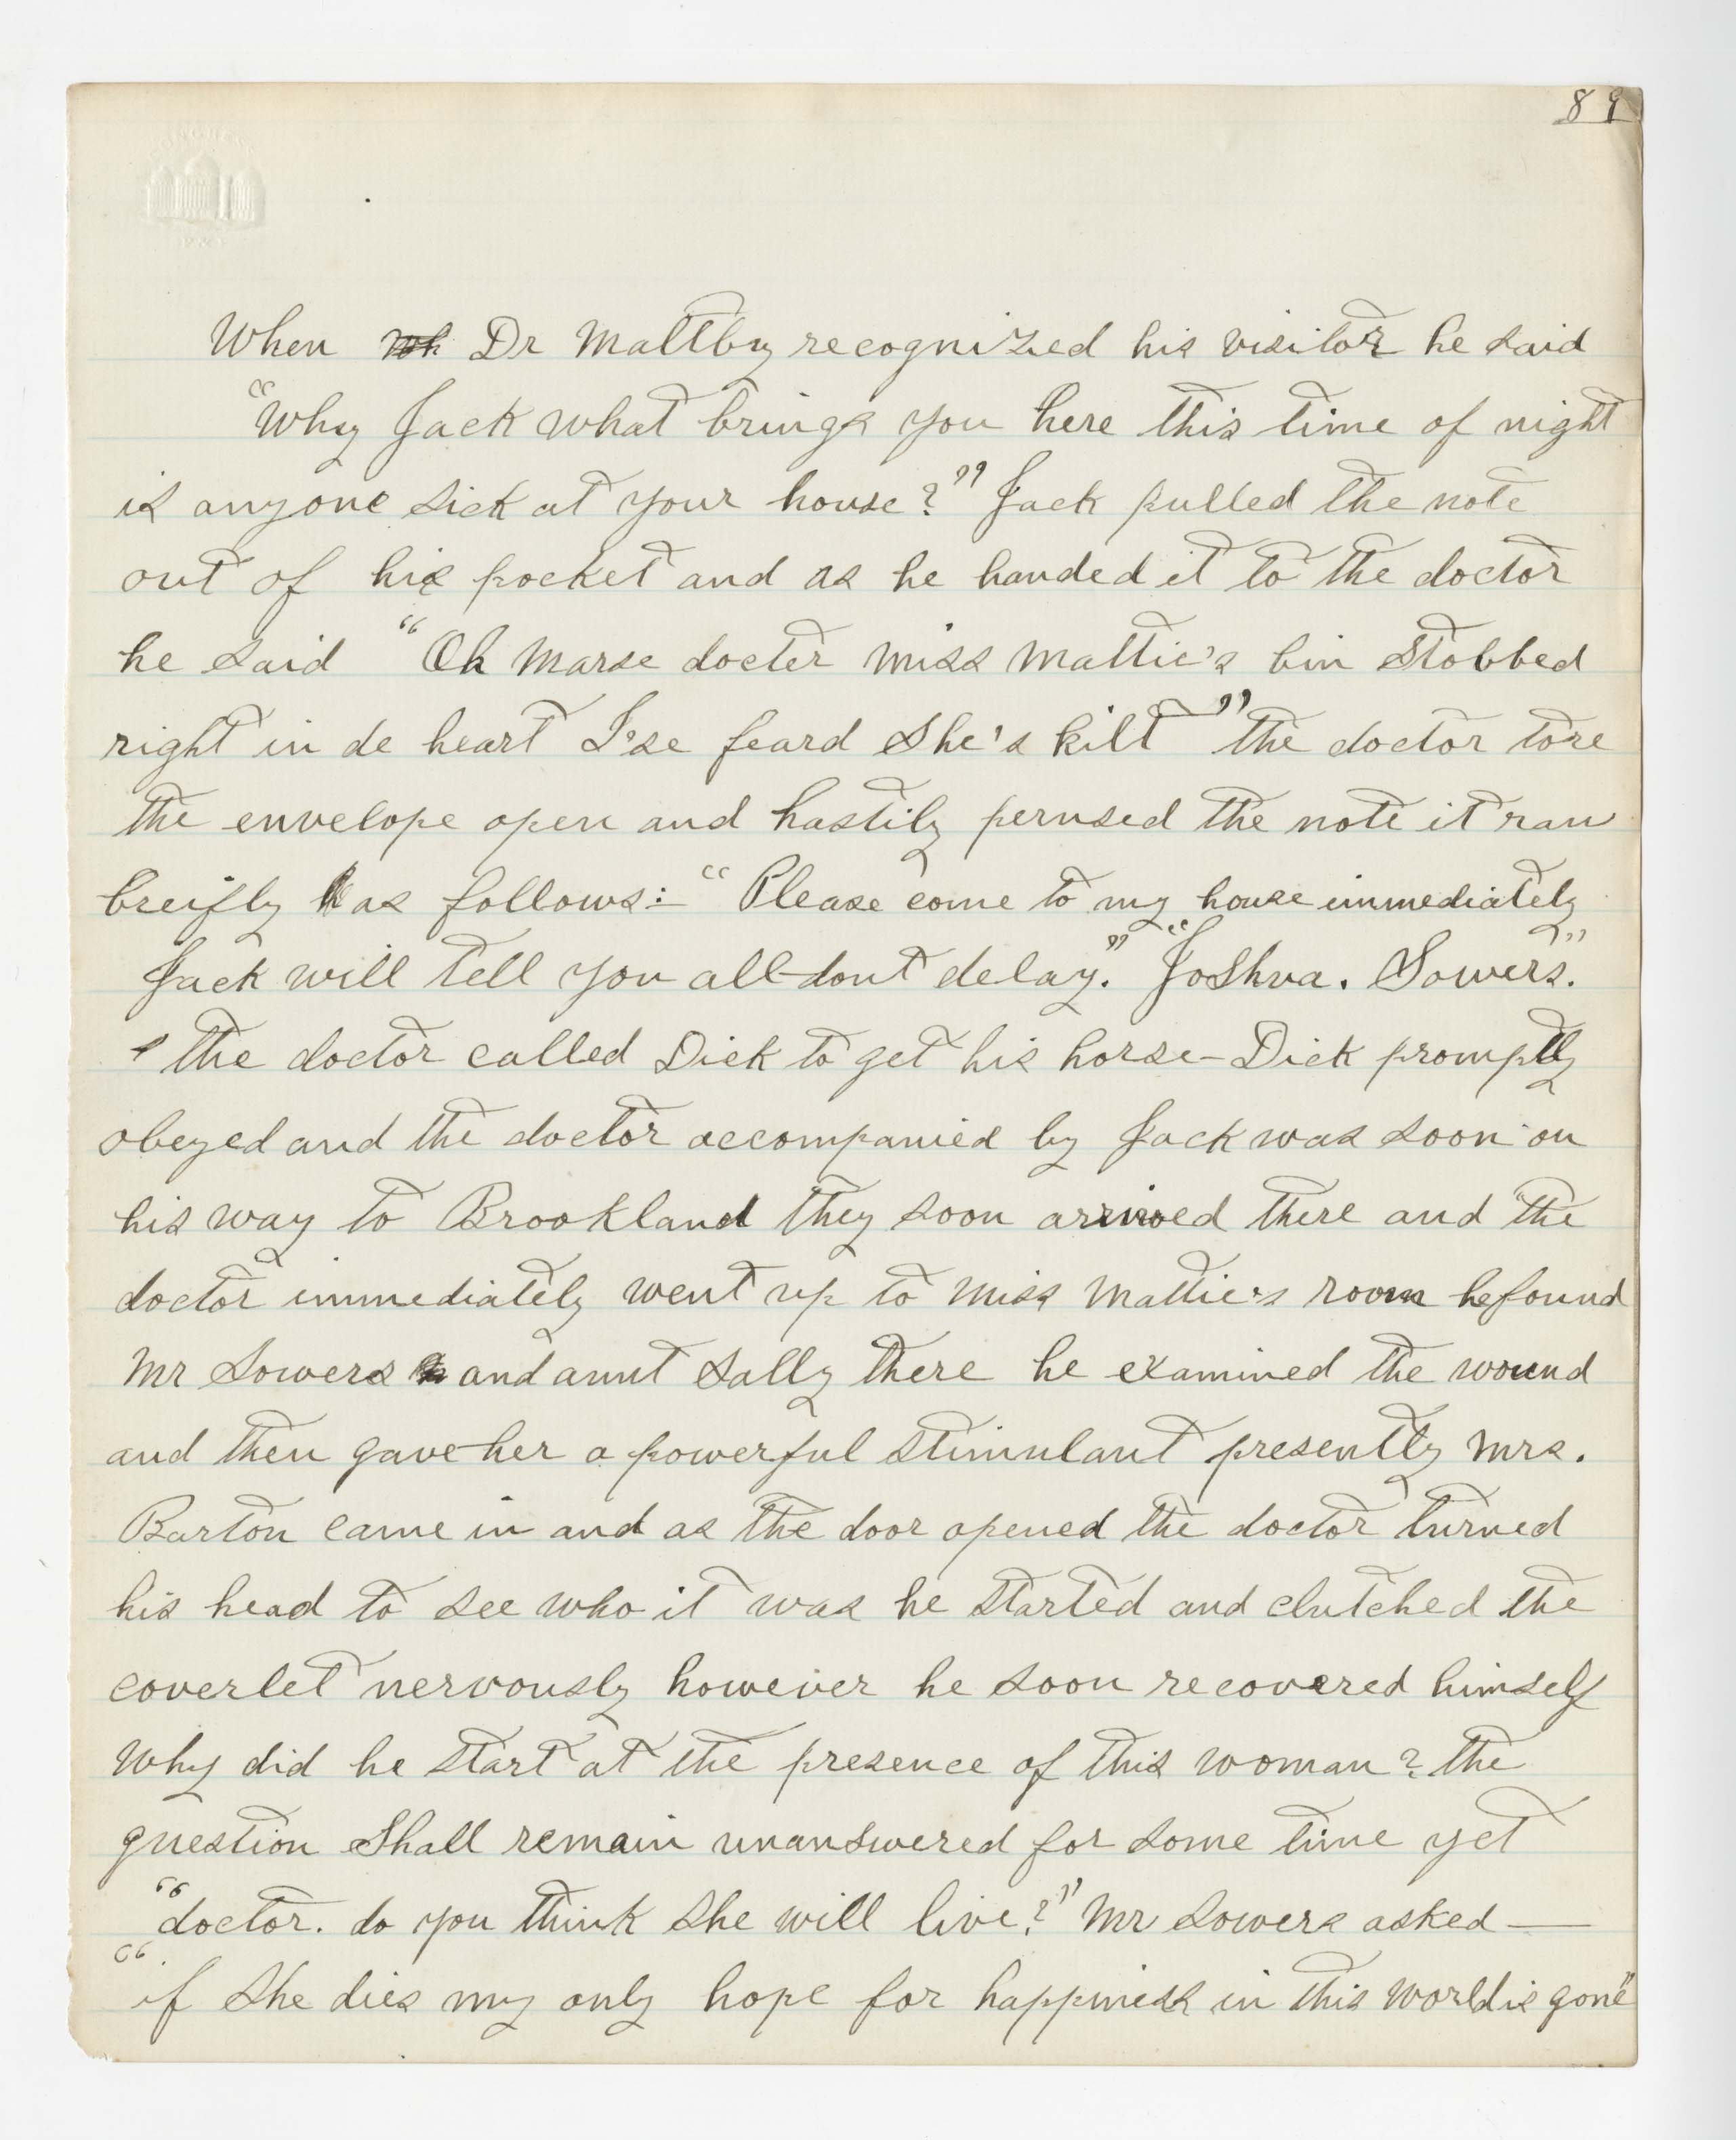 89
When Dr Maltby recognized his visitor he said
"Why Jack what brings you here this time of night
is anyone sick at your house?" Jack pulled the note
out of his pocket and as he handed it to the doctor
he said "Oh Marse docter Miss Mattie's bin Stobbed
right in de heart I'se feard She's kilt" the doctor tore
the envelope open and hastily perused the note it ran
breifly as follows:– "Please come to my house immediately
Jack will tell you all–dont delay." "Joshua. Sowers."
the doctor called Dick to get his horse–Dick promptly
obeyed and the doctor accompanied by Jack was soon on
his way to Brookland they soon arrived there and the
doctor immediately went up to Miss Mattie's room he found
Mr Sowers and aunt Sally there he examined the wound
and then gave her a powerful stimulant presently Mrs.
Barton came in and as the door opened the doctor turned
his head to see who it was he started and clutched the
coverlet nervously however he soon recovered himself
Why did he start at the presence of this woman? the
question Shall remain unanswered for some time yet
"doctor. do you think she will live?" Mr Sowers asked —
"if She dies my only hope for happiness in this world is gone"